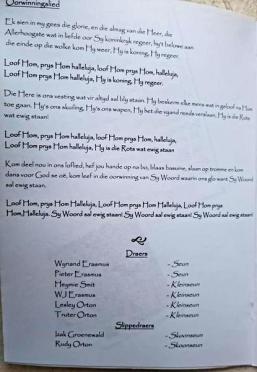 Oorwinningslied
Ek sien in my gees die glorie, en die almag van die Heer, die
Allerhoogste wat in liefde oor Sy koninkryk regeer, hy't belowe aan
die einde op die wolke kom Hy weer, Hy is koning, Hy regeer.
Loof Hom, prys Hom halleluja, loof Hom prys Hom, halleluja,
Loof Hom prys Hom halleluja, Hy is koning, Hy regeer.
Die Here is ons vesting wat vir altyd sal bly staan. Hy beskerm elke mens wat in geloof na Hom
toe gaan. Hy's ons skuiling, Hy's ons wapen, Hy het die vyand reeds verslaan, Hy is die Rots
wat ewig staan!
Loof Hom, prys Hom halleluja, loof Hom prys Hom, halleluja,
Loof Hom prys Hom halleluja, Hy is die Rots wat ewig staan
Kom deel nou in ons loflied, hef jou hande op na bo, blaas basuine, slaan op tromme en kom
dans voor God se oë, kom leef in die oorwinning van Sy Woord waarin ons glo want Sy Woord
sal ewig staan.
Loof Hom, prys Hom halleluja, Loof Hom prys Hom Halleluja, Loof Hom prys
Hom,Halleluja. Sy Woord sal ewig staan! Sy Woord sal ewig staan! Sy Woord sal ewig staan!
Draers
Wynand Erasmus - Seun
Pieter Erasmus - Seun
Heynie Smit - Kleinseun
WJ Erasmus - Kleinseun
Lesley Orton - Kleinseun
Truter Orton - Kleinseun
Slippedraers
Izak Groenewald - Skoonseun
Rudy Orton - Skoonseun